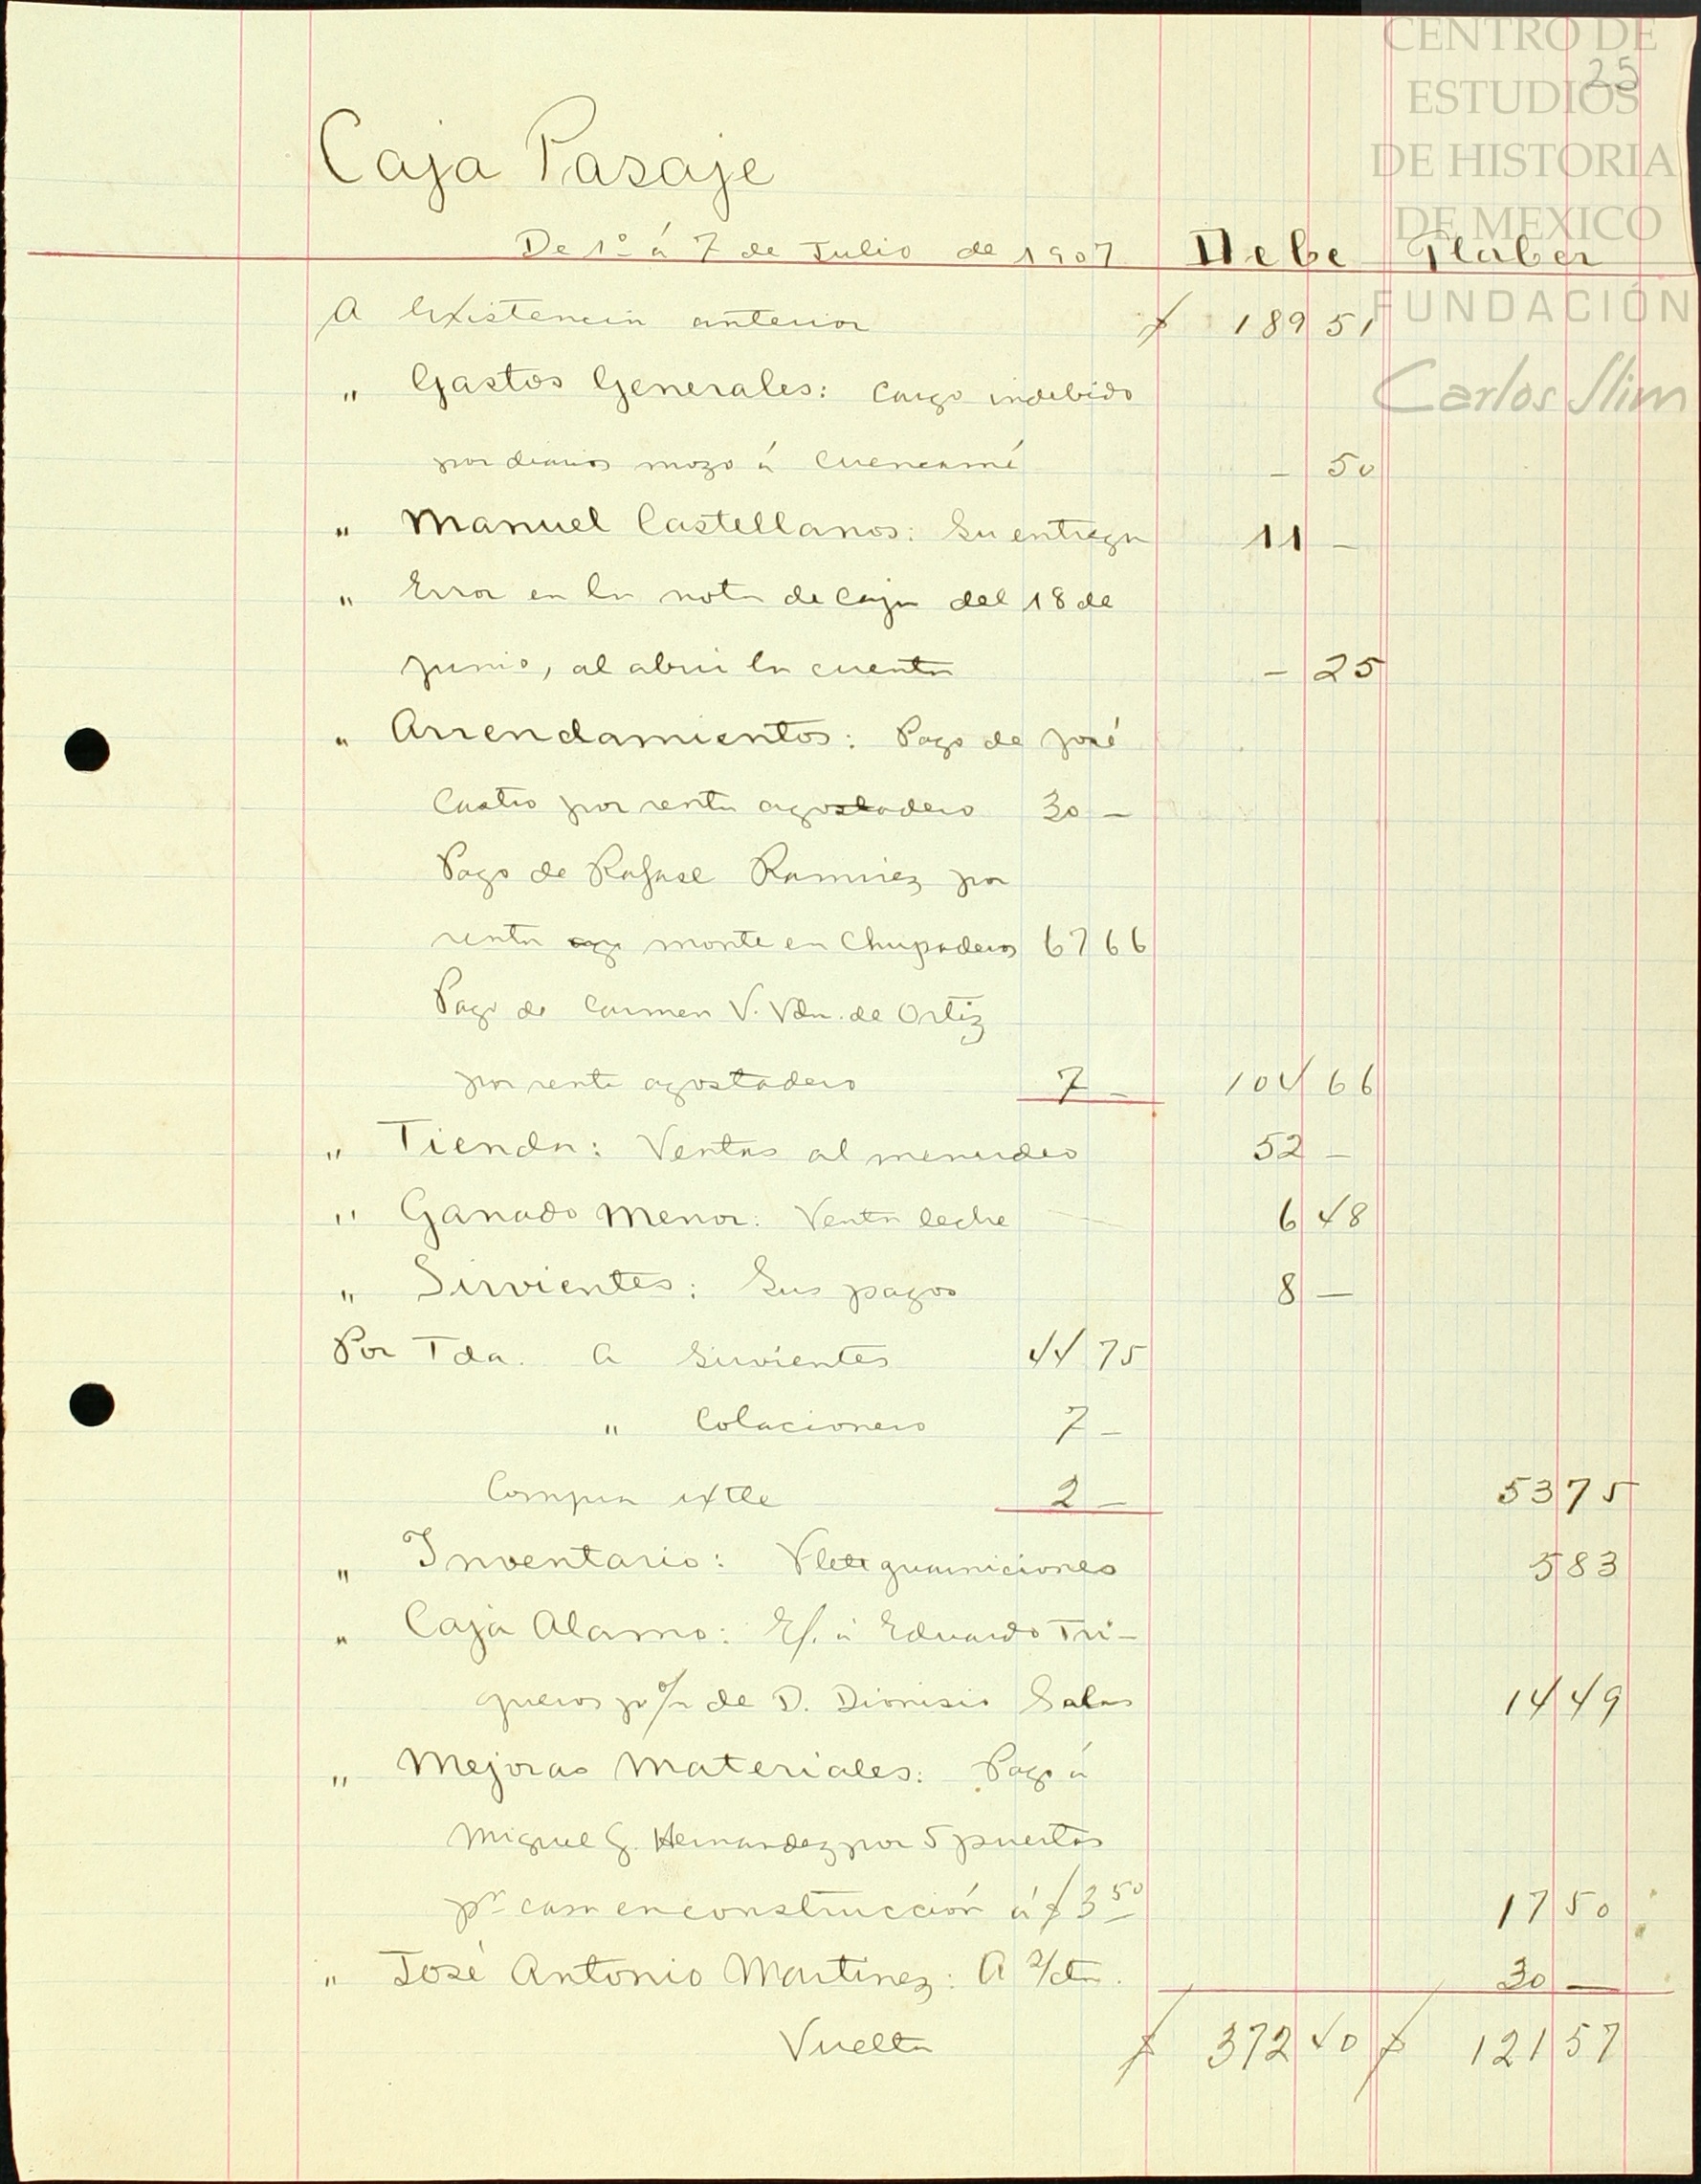 CENTRO DE
25
ESTUDIOS
DE HISTORIA
DE MEXICO
FUNDACIÓN
Carlos Slim
Caja Pasaje
De 1º á 7 de Julio de 1907 Debe Haber
A Existencia anterior $ 189 51
" Gastos Generales: Cargo indebido
por diarios mozo á Cuencamé - 50
" Manuel Castellanos: Su entrega 11 -
" Error en la nota de Caja del 18 de
junio, al abrir la cuenta - 25
" Arrendamientos: Pago de José
Castro por renta agostadero 30 -
Pago de Rafael Ramirez por
renta monte en Chupaderos 67 66
Pago de Carmen V. Vda. de Ortiz
por renta agostadero 7 - 104 66
" Tienda: Ventas al menudeo 52 -
" Ganado Menor: Venta leche 6 48
" Sirvientes: Sus pagos 8 -
Por Tda. A Sirvientes 44 75
" Colacionero 7 -
Compra ixtle 2 - 53 75
" Inventario: Flete guarniciones 5 83
" Caja Alamo: Ef. á Eduardo Tri-
gueros p% de D. Dionisio Salas 14 49
" Mejoras Materiales: Pago á
Miguel G. Hernandez por 5 puertas
pª casa en construcción á $ 3 50 17 50
" José Antonio Martinez: A s/cta. 30 -
Vuelta $ 372 40 $ 121 57